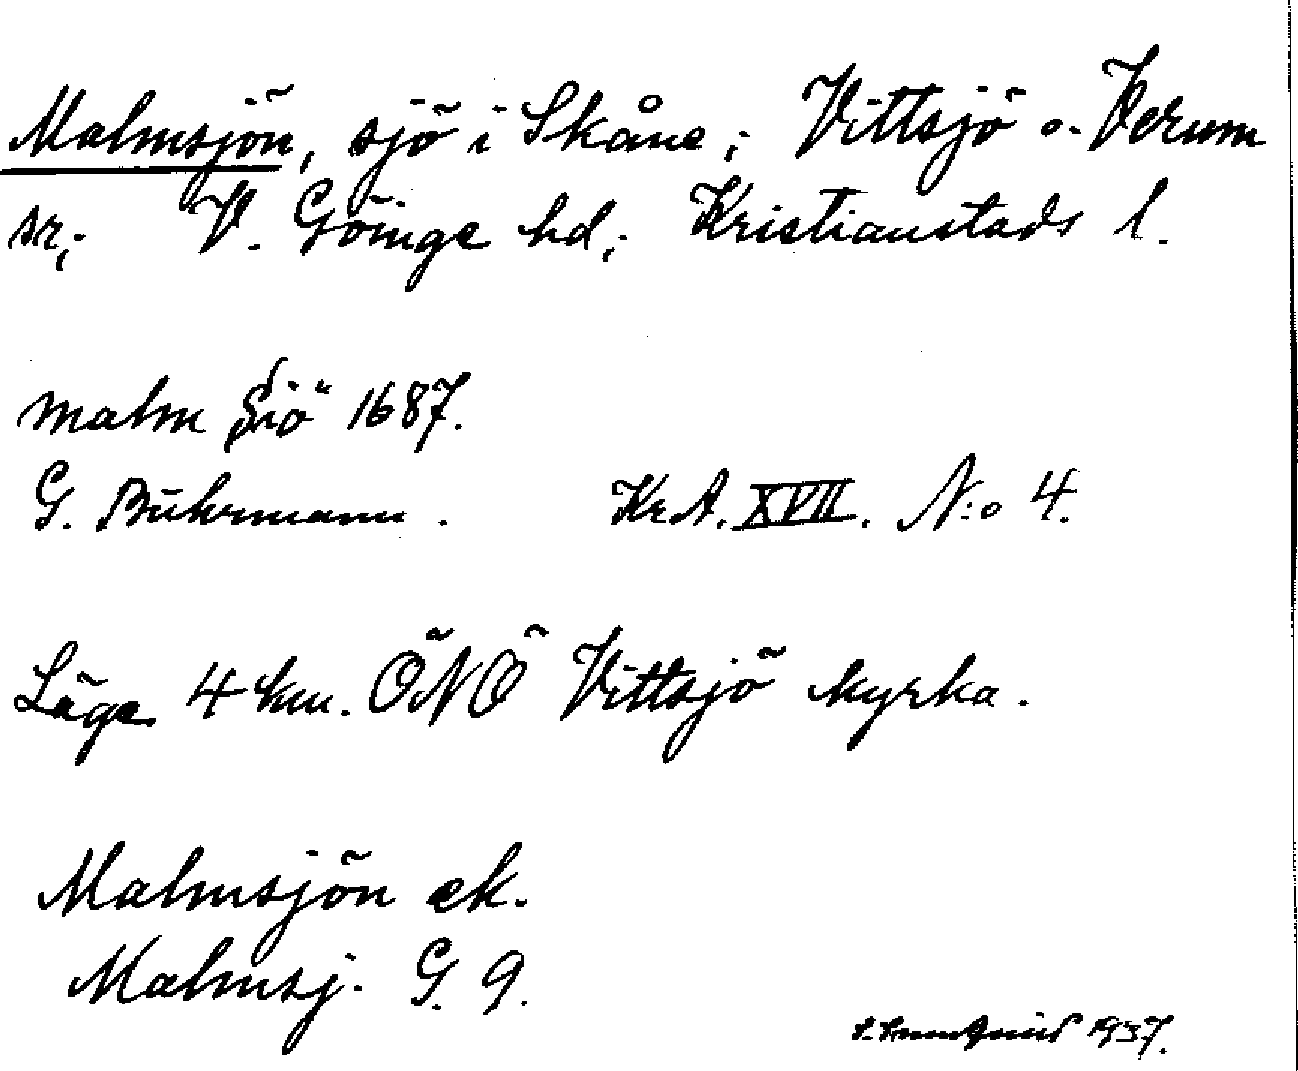 Malmsjön, sjö i Skåne; Vittsjö o. Verum
sr; V. Göinge hd; Kristianstads l.
Malm Siö 1687.
G. Buhrmann. Kr.A. XVII. N:o 4.
Läge 4 km. ÖNÖ Vittsjö kyrka.
Malmsjön ek.
Malmsj. G. 9.
1937.